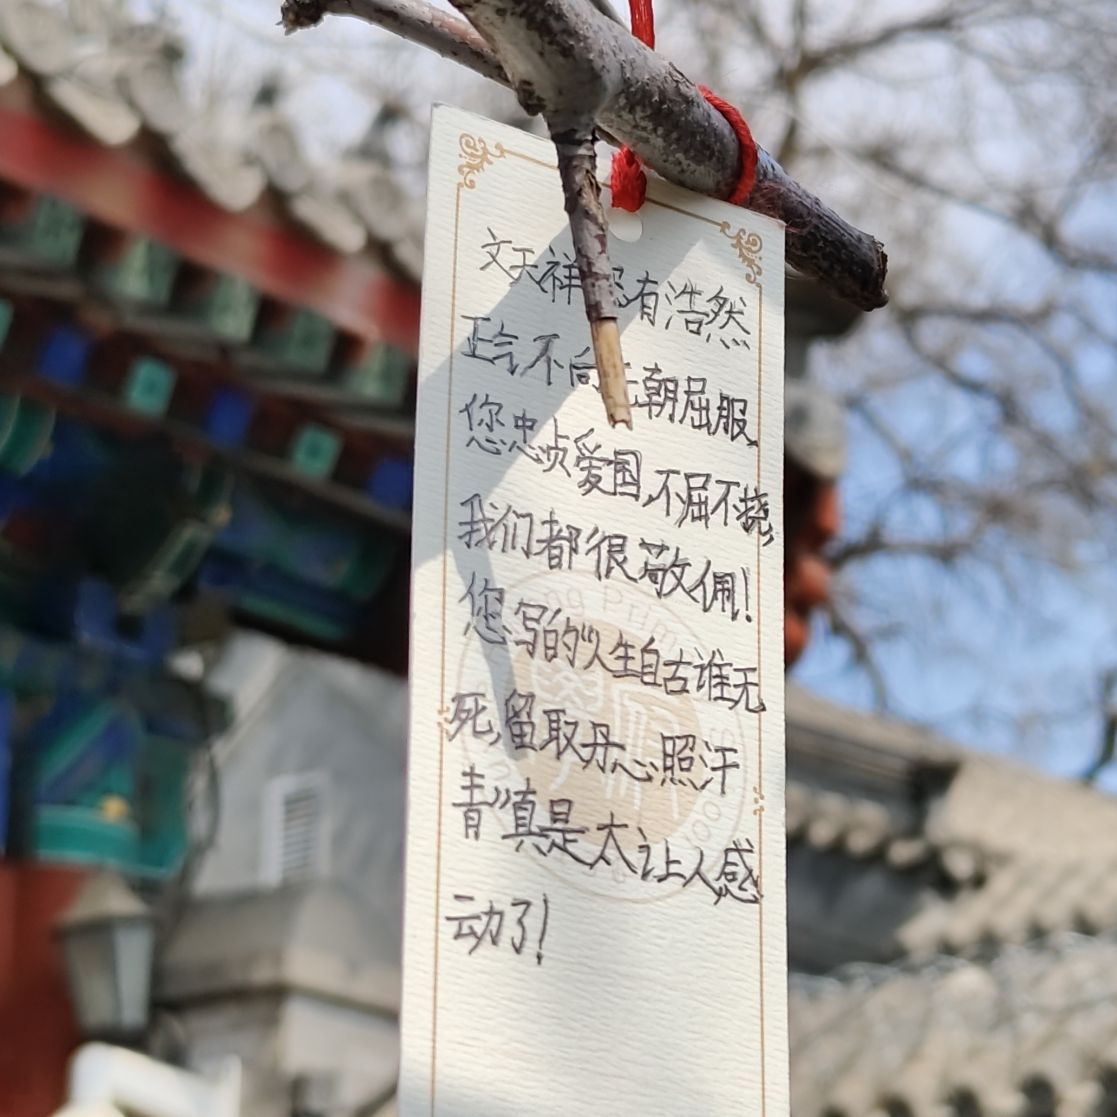 文天祥您有浩然
正气,不向元朝屈服,
您忠贞爱国,不屈不挠,
我们都很敬佩!
您写的“人生自古谁无
死,留取丹心照汗
青”真是太让人感
动了!